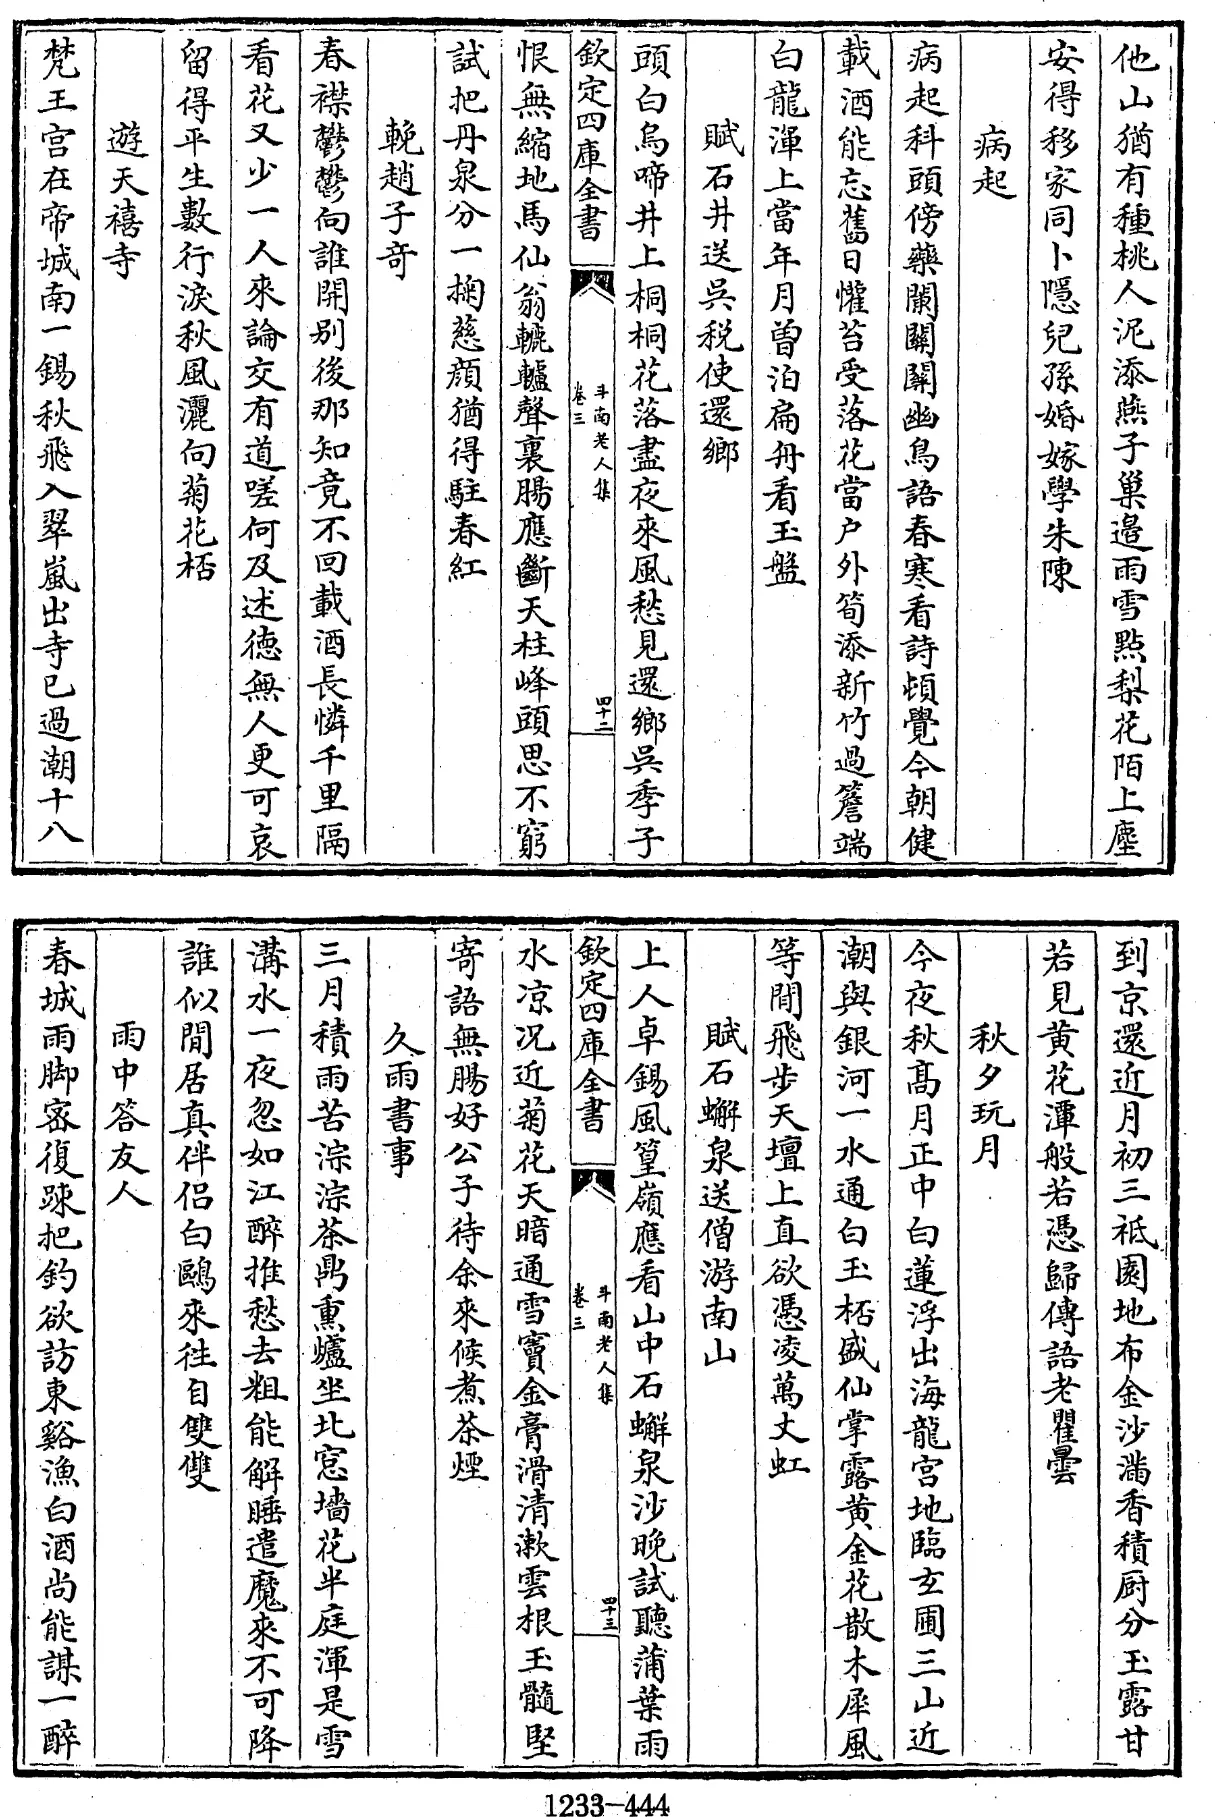 他山猶有種桃人泥添燕子巢邉雨雪㸃梨花陌上塵
安得移家同卜隱兒孫婚嫁學朱陳
病起
病起科頭傍藥闌關關幽鳥語春寒看詩頓覺今朝健
載酒能忘舊日懽苔受落花當户外筍添新竹過簷端
白龍渾上當年月曽泊扁舟看玉盤
賦石井送呉税使還鄉
頭白烏啼井上桐桐花落盡夜來風愁見還鄉呉季子
欽定四庫全書
斗南老人集
卷三
四十二
恨無縮地馬仙翁轆轤聲裏腸應斷天柱峰頭思不窮
試把丹泉分一掬慈顔猶得駐春紅
輓趙子竒
春襟鬱鬱向誰開别後那知竟不回載酒長憐千里隔
看花又少一人來論交有道嗟何及述徳無人更可哀
留得平生數行淚秋風灑向菊花桮
遊天禧寺
梵王宫在帝城南一錫秋飛入翠嵐出寺已過潮十八
到京還近月初三祗園地布金沙滿香積厨分玉露甘
若見黄花潭般若憑歸傳語老瞿曇
秋夕玩月
今夜秋髙月正中白蓮浮出海龍宫地臨玄圃三山近
潮與銀河一水通白玉桮盛仙掌露黄金花散木犀風
等間飛步天壇上直欲憑凌萬丈虹
賦石蠏泉送僧游南山
上人卓錫風篁嶺應看山中石蠏泉沙晚試聽蒲葉雨
欽定四庫全書
斗南老人集
卷三
四十三
水凉况近菊花天暗通雪竇金膏滑清漱雲根玉髓堅
寄語無腸好公子待余來候煮茶煙
久雨書事
三月積雨苦淙淙茶鼎熏爐坐北窓墻花半庭渾是雪
溝水一夜忽如江醉推愁去粗能解睡遣魔來不可降
誰似閒居真伴侣白鷗來徃自雙雙
雨中答友人
春城雨脚宻復踈把釣欲訪東谿漁白酒尚能謀一醉
1233-444